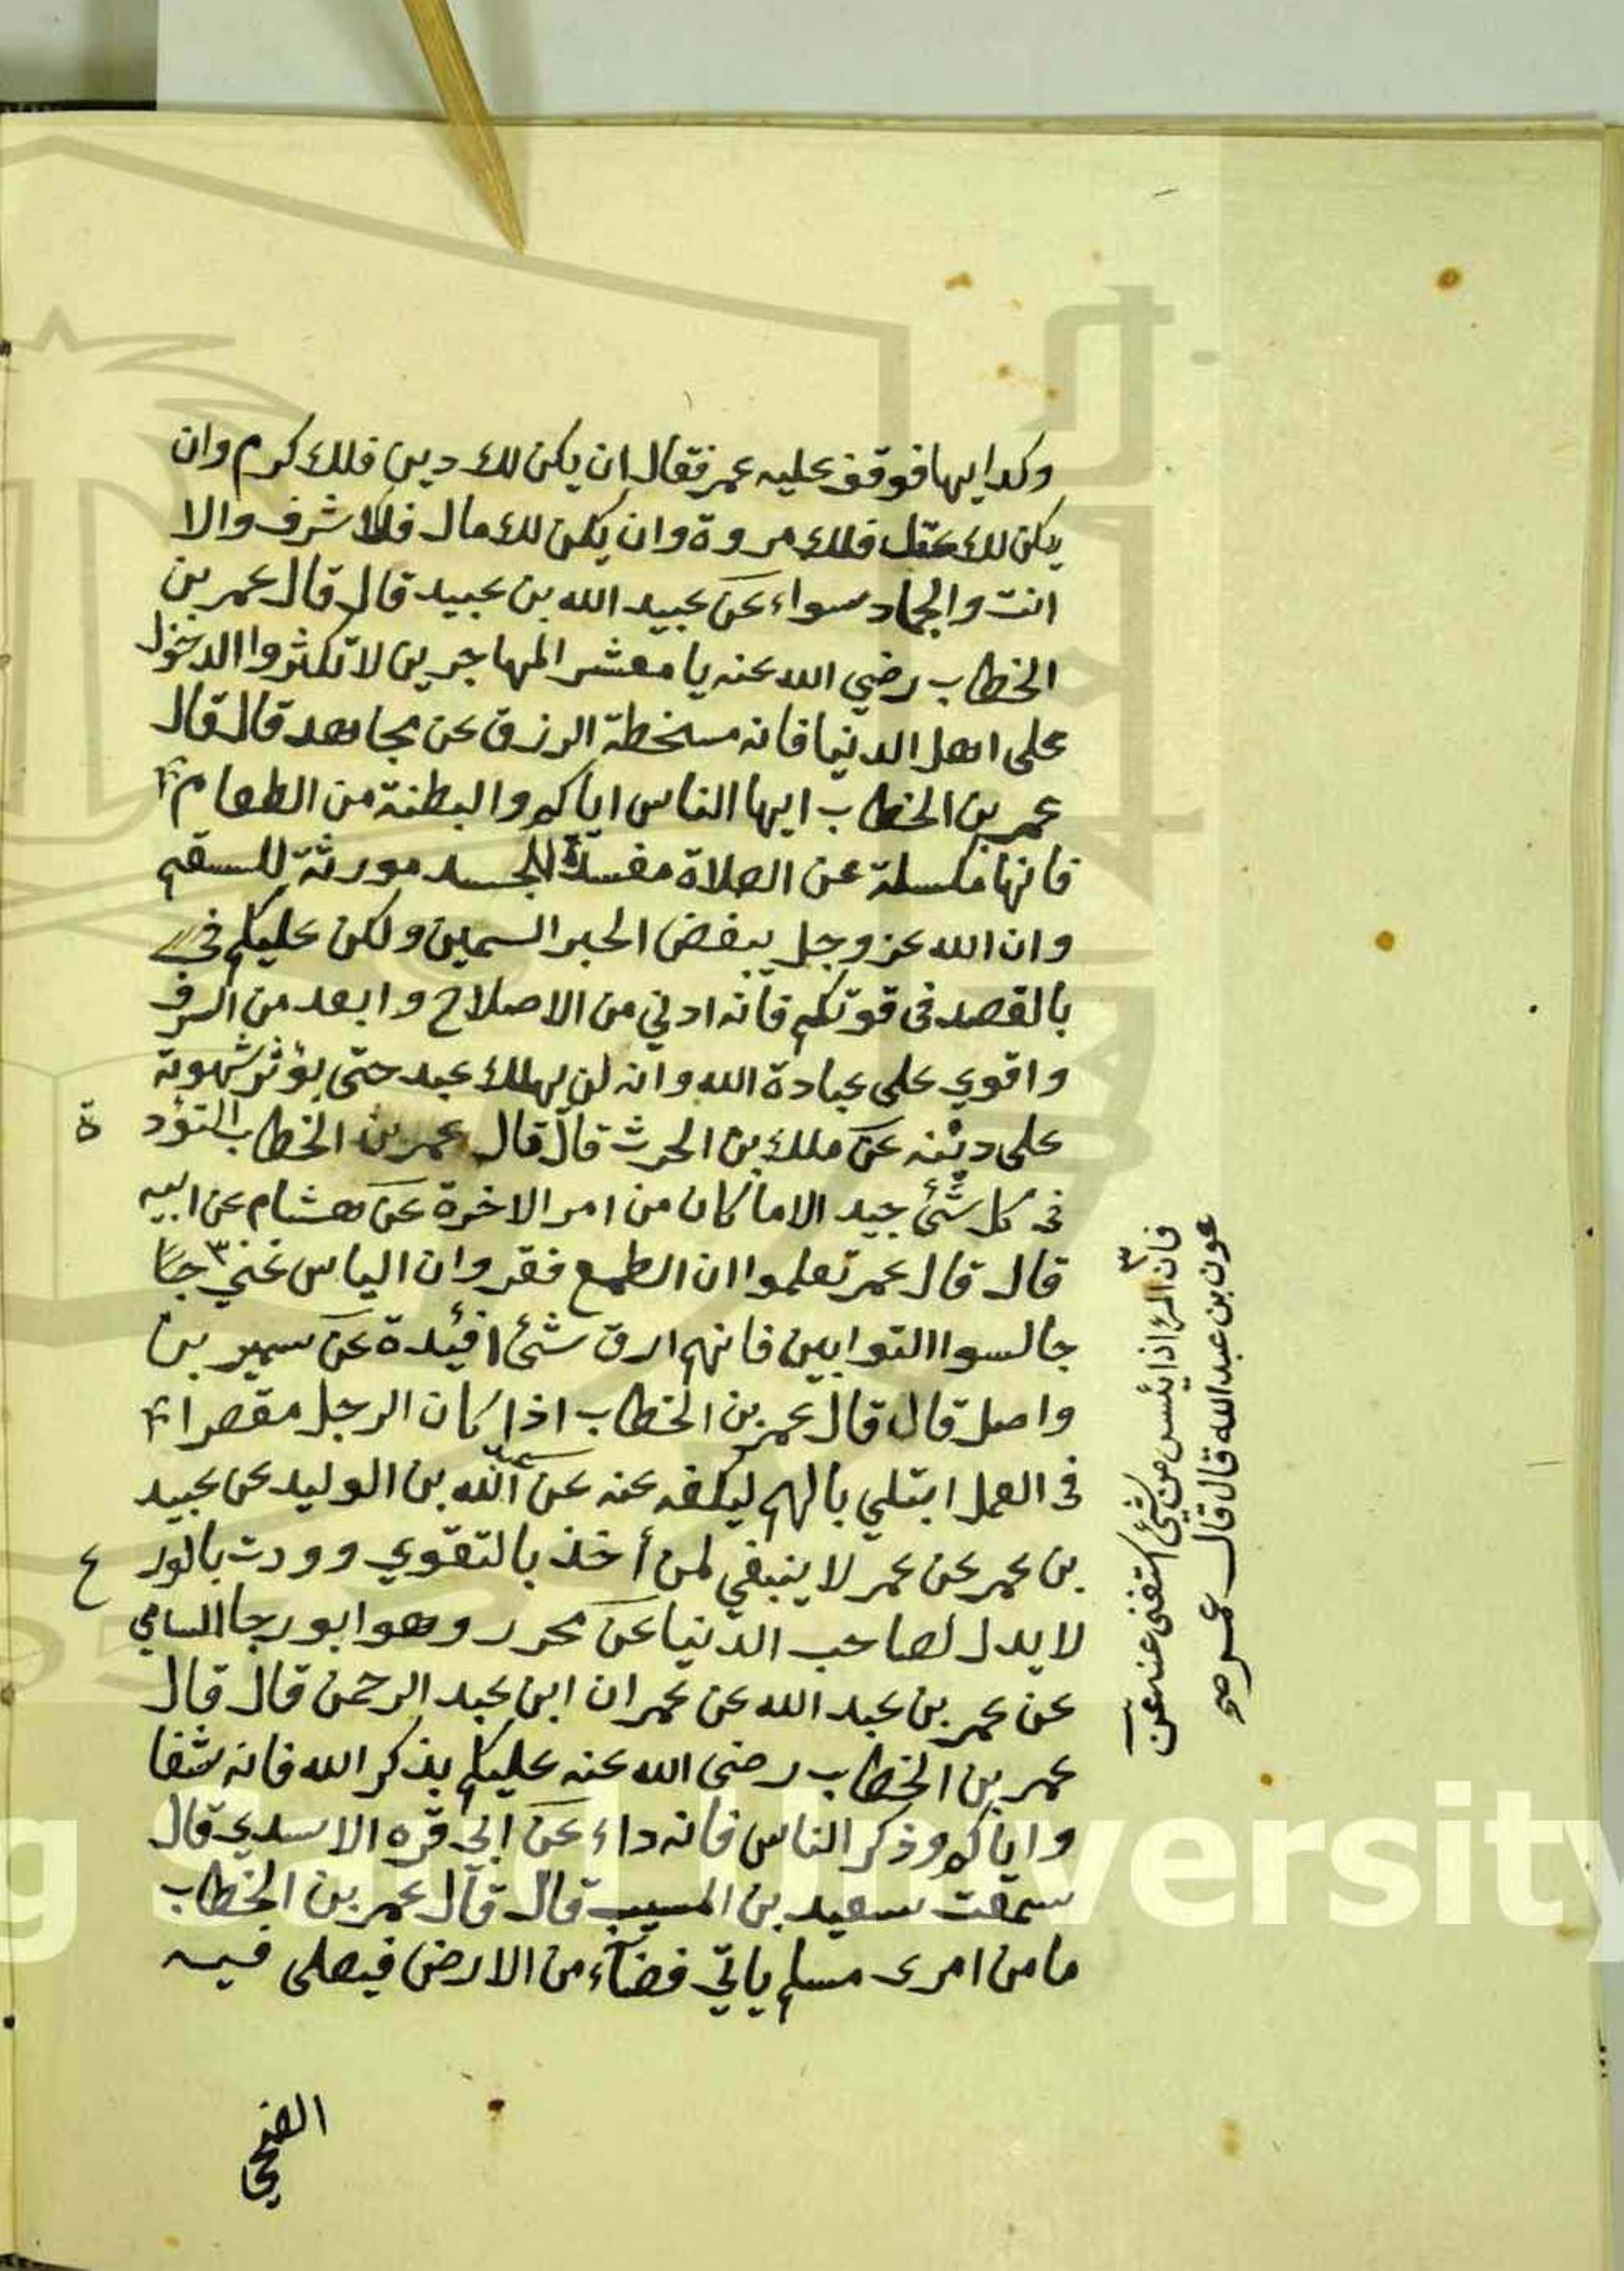 وكدا ايها فوقف عليه عمر فقال ان يكن لك دين فلك كرم وان
يكن لك عقل فلك مروة وان يكن لك مال فلك شرف والا
انت والحمار سواء عن عبيد الله بن عبيد قال قال عمر بن
الخطاب رضي الله عنه يا معشر المهاجرين لا تكثروا الدخول
على اهل الدنيا فانه مسخطة الرزق عن مجاهد قال قال
عمر بن الخطاب ايها الناس اياكم والبطنة من الطعام
فانها مكسلة عن الصلاة مفسدة للجسد مورثة للسقم
وان الله عز وجل يبغض الحبر السمين ولكن عليكم في
بالقصد في قوتكم فانه ادني من الاصلاح وابعد من السرف
واقوي على عبادة الله وانه لن يهلك عبد حتى يؤثر شهوته
على دينه عن ملك بن الحرث قال قال عمر بن الخطاب التؤدة
في كل شئ جيد الا ما كان من امر الاخرة عن هشام عن ابيه
قال قال عمر تعلموا ان الطمع فقر وان الياس غني ٣ جا
جالسوا التوابين فانهم ارق شئ افئدة عن سمير بن
واصل قال قال عمر بن الخطاب اذا كان الرجل مقصرا
في العمل ابتلي بالهم ليكفه عنه عن الله بن الوليد عن عبيد
بن عمر عن عمر لا ينبغي لمن أخذ بالتقوي وودت بالورع
لا يدل لصاحب الدنيا عن محرر وهو ابو رجا السامي
عن عمر بن عبد الله عن عمران ابن عبد الرحمن قال قال
عمر بن الخطاب رضى الله عنه عليكم بذكر الله فانه شفا
واياكم وذكر الناس فانه داء عن ابي قره الاسدي قال
سمعت سعيد بن المسيب قال قال عمر بن الخطاب
ما من امرى مسلم ياتي فضاء من الارض فيصلى فيه
الضحي
٣ فان المرء اذا يئس من شئ استغنى عنه عن
عون بن عبد الله قال قال عمر رضي